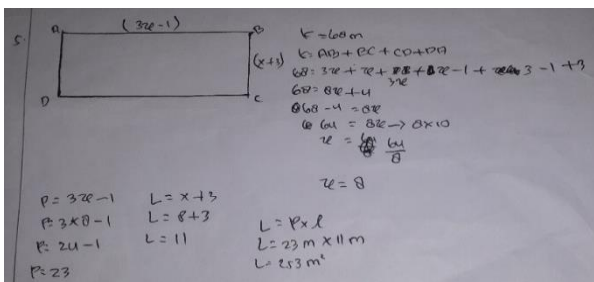 5.
A (3x-1) B
(x+3)
D C
K = 68 m
K = AB + BC + CD + DA
68 = 3x + x + 3x + x - 1 + 3 - 1 + 3
68 = 8x + 4
68 - 4 = 8x
64 = 8x → 8x10
x = 64/8
x = 8
P = 3x - 1
P = 3 x 8 - 1
P = 24 - 1
P = 23
L = x + 3
L = 8 + 3
L = 11
L = P x l
L = 23 m x 11 m
L = 253 m²